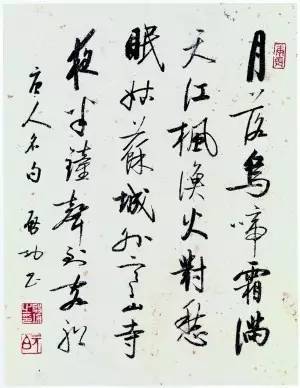 月落烏啼霜滿
天江楓漁火對愁
眠姑蘇城外寒山寺
夜半鐘聲到客船
唐人名句 啟功书